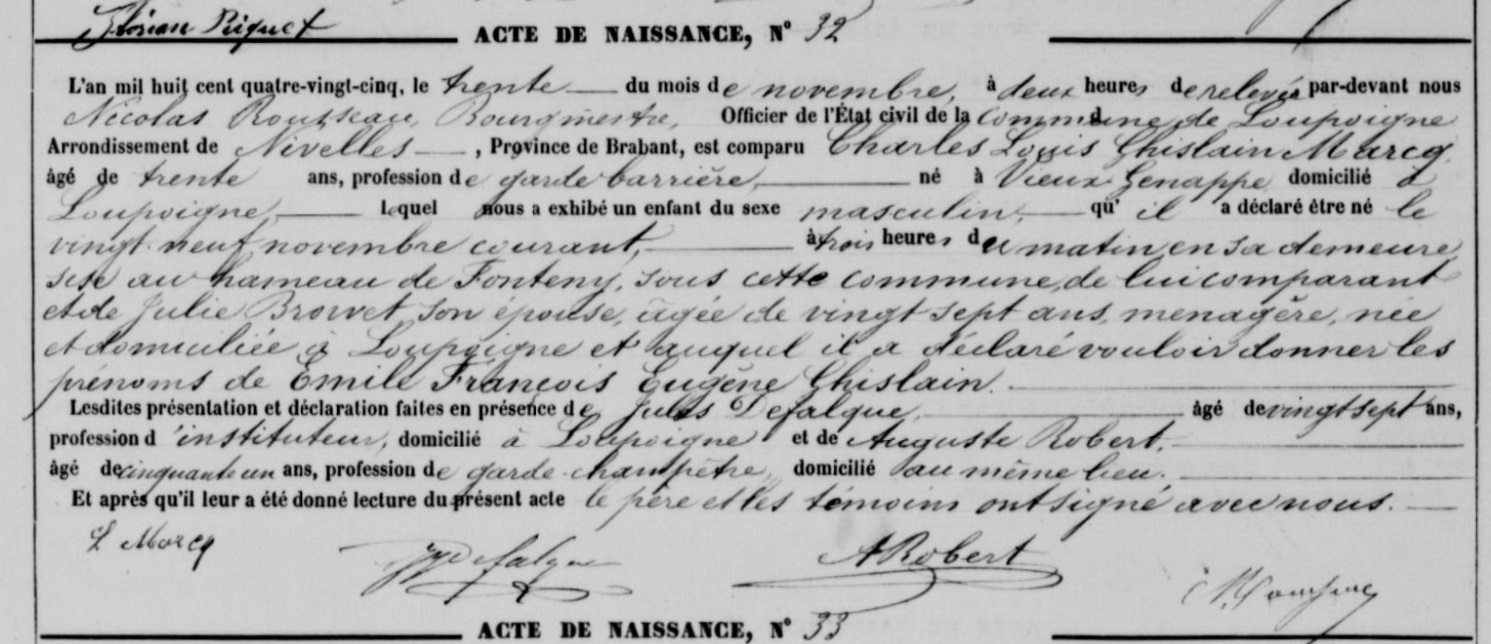 Florian Piquet
ACTE DE NAISSANCE, N° 32
L'an mil huit cent quatre-vingt-cinq, le trente du mois de novembre, à deux heures de relevée par-devant nous
Nicolas Rousseau, Bourgmestre, Officier de l'État civil de la commune de Loupoigne
Arrondissement de Nivelles, Province de Brabant, est comparu Charles Louis Ghislain Marcq,
âgé de trente ans, profession de garde barrière, né à Vieux Genappe, domicilié à
Loupoigne, lequel nous a exhibé un enfant du sexe masculin, qu'il a déclaré être né le
vingt neuf novembre courant, à trois heures du matin en sa demeure
sise au hameau de Fonteny, sous cette commune, de lui comparant
et de Julie Brovet, son épouse, agée de vingt sept ans, menagère, née
et domiciliée à Loupoigne et auquel il a déclaré vouloir donner les
prénoms de Emile François Eugène Ghislain.
Lesdites présentation et déclaration faites en présence de Jules Defalque, âgé de vingt sept ans,
profession d'instituteur, domicilié à Loupoigne et de Auguste Robert,
âgé de cinquante un ans, profession de garde-champêtre, domicilié au même lieu.
Et après qu'il leur a été donné lecture du présent acte le père et les témoins ont signé avec nous.
L Marcq Defalque ARobert
ACTE DE NAISSANCE, N° 33